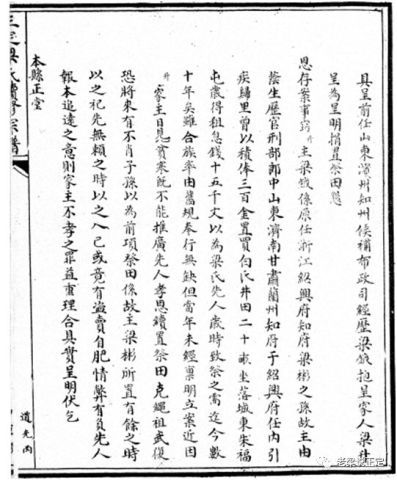 具呈前任山東濱州知州候補布政司經歷梁　抱呈家人梁升
呈為呈明捐置祭田懇
恩存案事竊升主梁　係原任浙江紹興府知府梁彬之孫故主由
蔭生歷官刑部郎中山東濟南甘肅蘭州知府于紹興府任內引
疾歸里曾以積俸三百金置買向氏井田二十畝坐落城東朱福
屯歲得租息錢十五千文以為梁氏先人歲時致祭之需迄今數
十年矣雖合族率由舊規奉行無缺但當年未經稟明立案近因
升家主日見貧寒既不能推廣先人孝思續置祭田克繩祖武復
恐將來有不肖子孫以為前項祭田係故主梁彬所置有餘之時
以之祀先無賴之時以之入己或竟有盜賣自肥情弊有負先人
報本追遠之意則家主不孝之罪益重理合具實呈明伏乞
本縣正堂
道光丙
老梁說正定